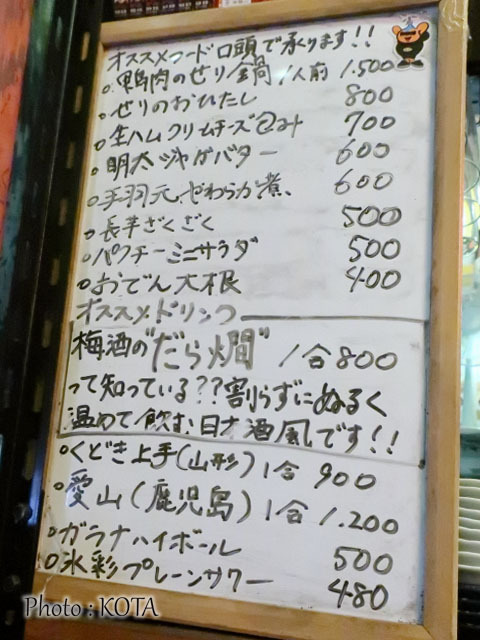 オススメフード口頭で承ります!!
○鴨肉のせり鍋 1人前 1.500
○せりのおひたし 800
○生ハムクリームチーズ包み 700
○明太ジャガバター 600
○手羽元、やわらか煮、 600
○長芋ざくざく 500
○パクチーミニサラダ 500
○おでん大根 400
オススメドリンク
梅酒の"だら燗" 1合800
って知っている??割らずにぬるく
温めて飲む、日本酒風です!!
○くどき上手(山形)1合 900
○愛山(鹿児島)1合 1.200
○ガラナハイボール 500
○氷彩プレーンサワー 480
Photo : KOTA